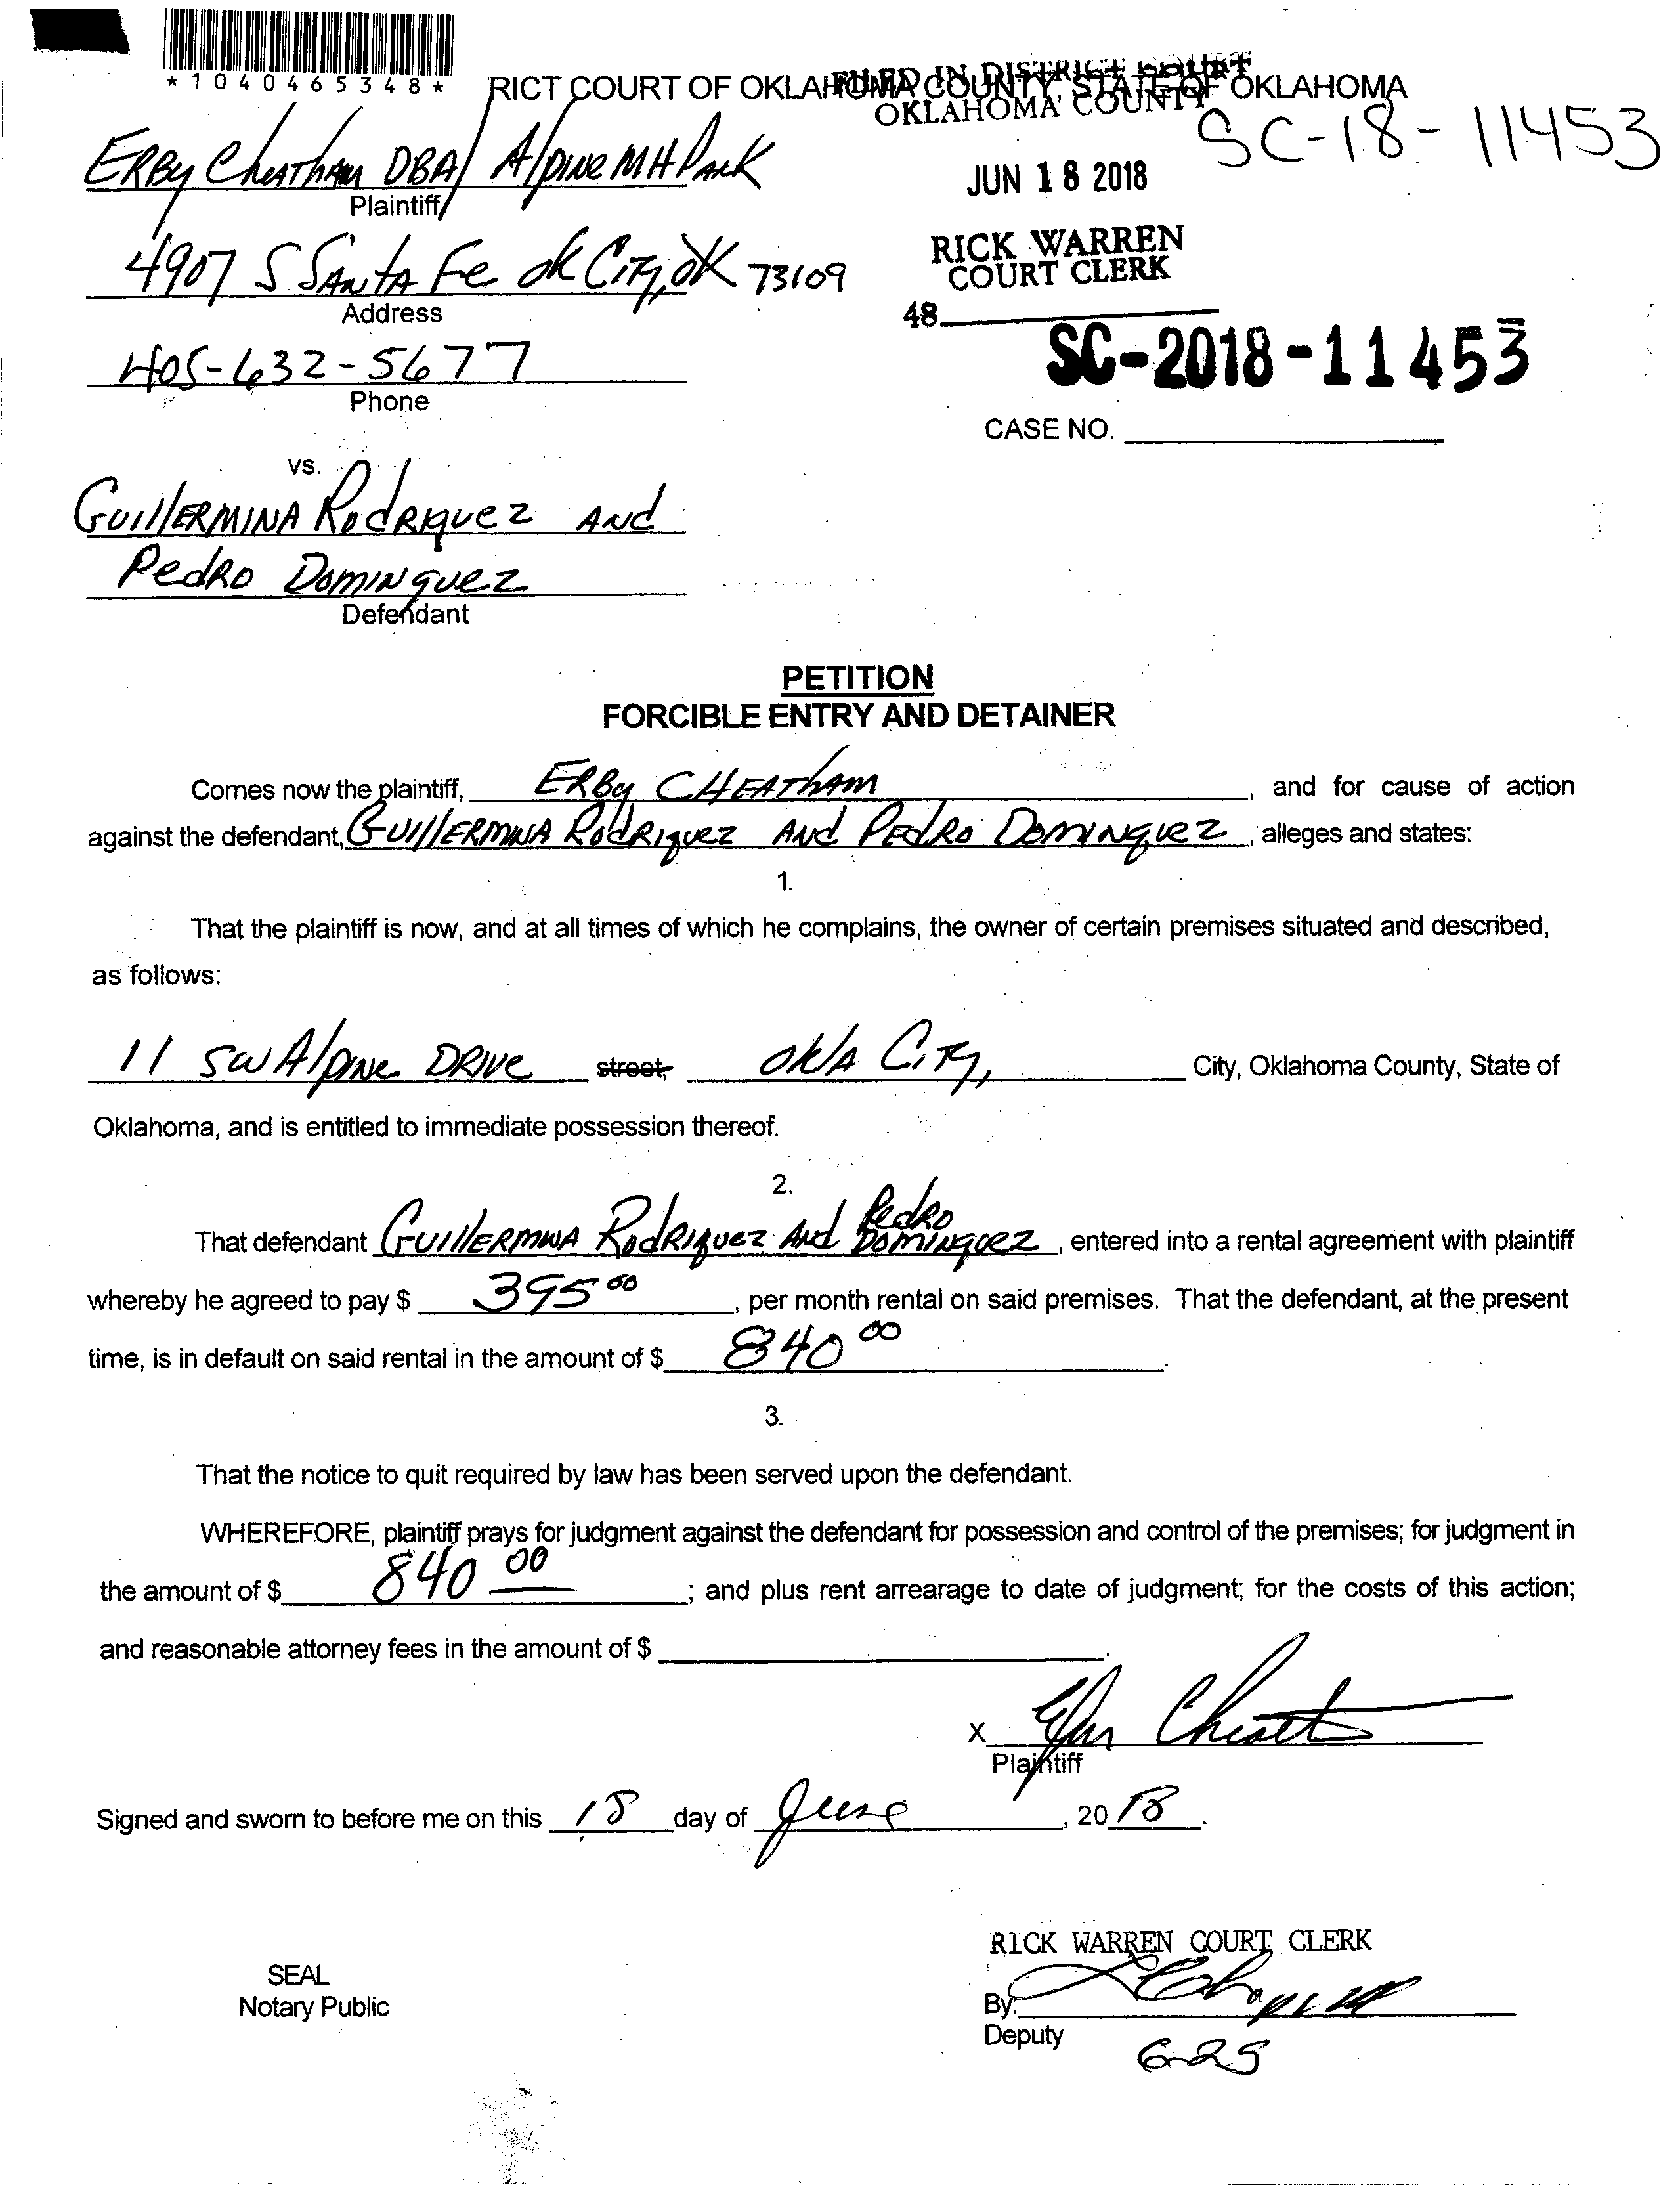 *1040465348*
RICT COURT OF OKLAHOMA COUNTY, STATE OF OKLAHOMA
FILED IN DISTRICT COURT
OKLAHOMA COUNTY
SC-18-11453
ERBy CheATham DBA/ Alpine MH PARK
Plaintiff
JUN 18 2018
4907 S SANTA Fe ok City, OK 73109
Address
RICK WARREN
COURT CLERK
48
405-632-5677
Phone
SC-2018-11453
CASE NO.
vs.
GuillERMINA RodRiquez AND
PedRo Dominquez
Defendant
PETITION
FORCIBLE ENTRY AND DETAINER
Comes now the plaintiff, ERBy CHEATham, and for cause of action
against the defendant, GuillERMINA RodRiquez And PedRo Dominquez, alleges and states:
1.
That the plaintiff is now, and at all times of which he complains, the owner of certain premises situated and described,
as follows:
11 SW Alpine DRive street, okla City, City, Oklahoma County, State of
Oklahoma, and is entitled to immediate possession thereof.
2.
That defendant GuillERMINA RodRiquez And PedRo Dominquez, entered into a rental agreement with plaintiff
whereby he agreed to pay $ 395 00, per month rental on said premises. That the defendant, at the present
time, is in default on said rental in the amount of $ 840 00.
3.
That the notice to quit required by law has been served upon the defendant.
WHEREFORE, plaintiff prays for judgment against the defendant for possession and control of the premises; for judgment in
the amount of $ 840 00; and plus rent arrearage to date of judgment; for the costs of this action;
and reasonable attorney fees in the amount of $.
X
Plaintiff
Signed and sworn to before me on this 18 day of June, 20 18.
RICK WARREN COURT CLERK
SEAL
Notary Public
By:
Deputy
6-25